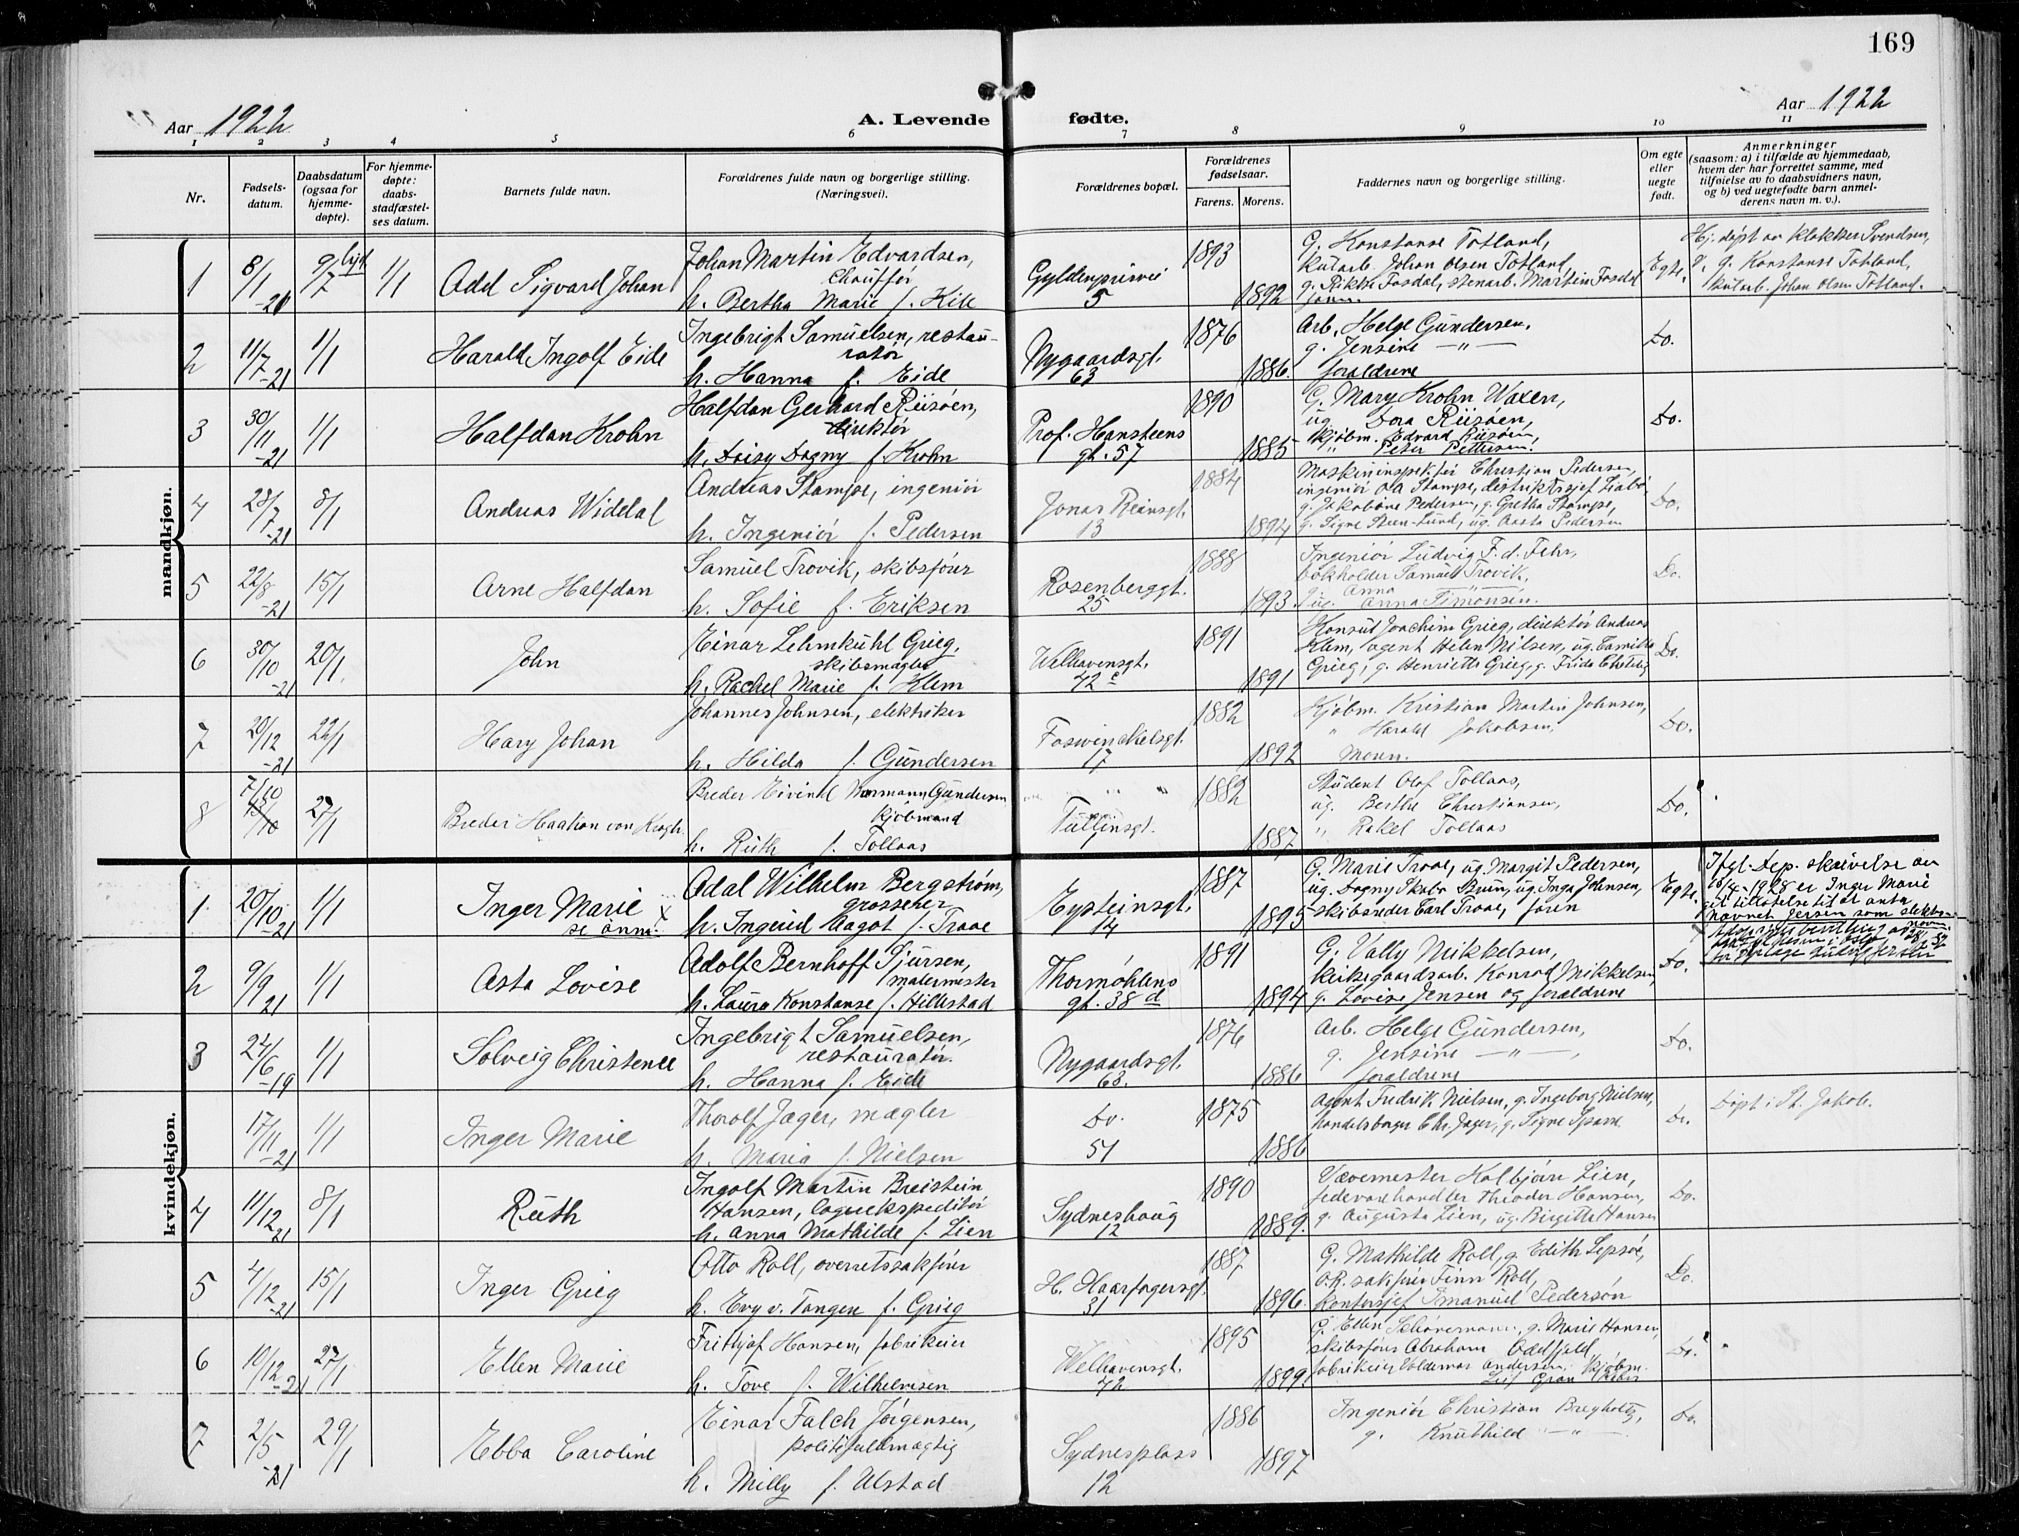 169
Aar 1922
A. Levende fødte.
Aar 1922
1 2 3 4 5 6 7 8 9 10 11
Nr.
Fødsels-
datum.
Daabsdatum
(ogsaa for
hjemme-
døpte).
For hjemme-
døpte:
daabs-
stadfæstel-
ses datum.
Barnets fulde navn.
Forældrenes fulde navn og borgerlige stilling.
(Næringsvei).
Forældrenes bopæl.
Forældrenes
fødselsaar.
Farens. Morens.
Faddernes navn og borgerlige stilling.
Om egte
eller
uegte
født.
Anmerkninger
(saasom: a) i tilfælde av hjemmedaab,
hvem der har forrettet samme, med
tilføielse av to daabsvidners navn,
og b) ved uegtefødte barn anmel-
derens navn m. v.).
mandkjøn.
1
8/1 -20
9/7
1/1
Add Sigvard Johan
Johan Martin Edvardsen,
Chauffør
h. Bertha Marie f. Kile
Gyldenprisvei
5
1893
1892
G. Konstanse Totland,
kularb. Johan Olsen Totland,
g. Rikke Fosdal, stenarb. Martin Fosdal
Egte.
Hj. døpt av klokker Svendsen,
g. Konstanse Totland,
kularb. Johan Olsen Totland.
2
11/7 -21
1/1
Harald Ingolf Eide
Ingebrigt Samuelsen, restau-
ratør
h. Hanna f. Eide
Nygaardsgt.
63
1876
1886.
Arb. Helge Gundersen,
g. Jensine —"—
forældrene
Do.
3
30/11 -21
1/1
Halfdan Krohn
Halfdan Gerhard Riisøen,
direktør
h. Daisy Dagny f. Krohn
Prof. Hansteens
gt. 57
1890
1885
G. Mary Krohn Waxen,
ug. Dora Riisøen,
kjøbm. Edvard Riisøen,
" Peter Pettersen.
Do.
4
23/7 -21
8/1
Andreas Widdal
Andreas Stampe, ingeniør
h. Ingeniør f. Pedersen
Jonas Reinsgt.
13
1884
1894
Maskininspektør Christian Pedersen,
ingeniør Ola Stampe, distriktssjef
g. Jakobine Pedersen, g. Gretha Stampe,
g. Signe Steen-Lund, ug. Aasta Pedersen
Do.
5
22/8 -21
15/1
Arne Halfdan
Samuel Trovik, skibsfører
h. Sofie f. Eriksen
Rosenberggt.
25
1888
1893
Ingeniør Ludvig F. d. Fehr,
bokholder Samuel Trovik,
g. Anna —"—
ug. Anna Simonsen.
Do.
6
30/10 -21
20/1
John
Einar Lehmkuhl Grieg,
skibsmægler
h. Rachel Marie f. Klem
Welhavensgt.
72 c
1891
1891
Konsul Joachim Grieg, direktør Andreas
Klem, agent Helen Nilsen, ug. Camilla
Grieg, g. Henriette Grieg, g. Frida
Do.
7
20/12 -21
22/1
Hary Johan
Johannes Johnsen, elektriker
h. Hilda f. Gundersen
Foswinckelsgt.
17
1882
1892
Kjøbm. Kristian Martin Johnsen,
" Harald Jakobsen,
Moren.
Do.
8
7/10
13/10
27/1
Breder Haakon von Krogh
Breder Eivind Normann Gundersen
kjøbmand
h. Ruth f. Tollaas
Tullinsgt.
1882
1887
Student Olof Tollaas,
ug. Berthe Christiansen,
" Rakel Tollaas
Do.
kvindekjøn.
1
20/10 -21
1/1
Inger Marie x
se anm.
Adal Wilhelm Bergstrøm,
grosserer
h. Ingerid Aagot f. Traae
Eysteinsgt.
14
1887
1895
G. Marie Traae, ug. Margit Pedersen,
ug. Dagny Skabo Bruin, ug. Inga Johnsen,
skibsreder Carl Traae, faren
Egte.
Ifgl. Dep. skrivelse av
1928 er Inger Marie
git tillatelse til at anta
navnet Jersen som slekts-
navn.
2
9/9 21
1/1
Asta Lovise
Adolf Bernhoff Sjursen,
malermester
h. Laura Konstanse f. Hillestad
Thormøhlens
gt. 38 d
1891
1894
G. Vally Mikkelsen,
kirkegaardsarb. Konrad Mikkelsen,
g. Lovise Jensen og forældrene
Do.
3
24/6 -19
1/1
Solveig Christence
Ingebrigt Samuelsen,
restauratør.
h. Hanna f. Eide
Nygaardsgt.
63.
1876
1886
Arb. Helge Gundersen,
g. Jensine —"—,
forældrene
Do.
17/11 -21
1/1
Inger Marie
Thorolf Jæger, mægler
h. Maria f. Nielsen
Do.
51
1875
1886
Agent Fredrik Nielsen, g. Ingeborg Nielsen,
handelsborger Chr. Jæger, g. Signe Sparre
Do.
Døpt i St. Jakob.
4
11/12 21
8/1
Ruth
Ingolf Martin Breistein
Hansen, lagerekspeditør
h. Anna Mathilde f. Lien
Sydneshaug
12
1890
1889.
Vævermester Kolbjørn Lien,
fedevarehandler Theodor Hansen,
g. Augusta Lien, ug. Birgitte Hansen
Do.
5
4/12 -21
15/1
Inger Grieg
Otto Roll, overretssakfører
h. Evy v. Tangen f. Grieg
H. Haarfagersgt.
31
1887
1896.
G. Mathilde Roll, g. Edith Lepsøe,
O.R. sakfører Finn Roll,
kontorsjef Emanuel Pedersøn
Do.
6
10/12 -21
27/1
Ellen Marie
Frithjof Hansen, fabrikeier
h. Tove f. Wilhelmsen
Welhavensgt.
72
1895
1899
G. Ellen Schønemann, g. Marie Hansen,
skibsfører Abraham Oddfjeld,
fabrikeier Valdemar Andersen, kjøbm.
Leif Gran
Do.
7
2/5 -21
29/1
Ebba Caroline
Einar Falch Jørgensen,
politifuldmægtig
h. Milly f. Alstad
Sydnesplass
12
1886
1897
Ingeniør Christian Bregholtz,
g. Knuthild —"—
Do.